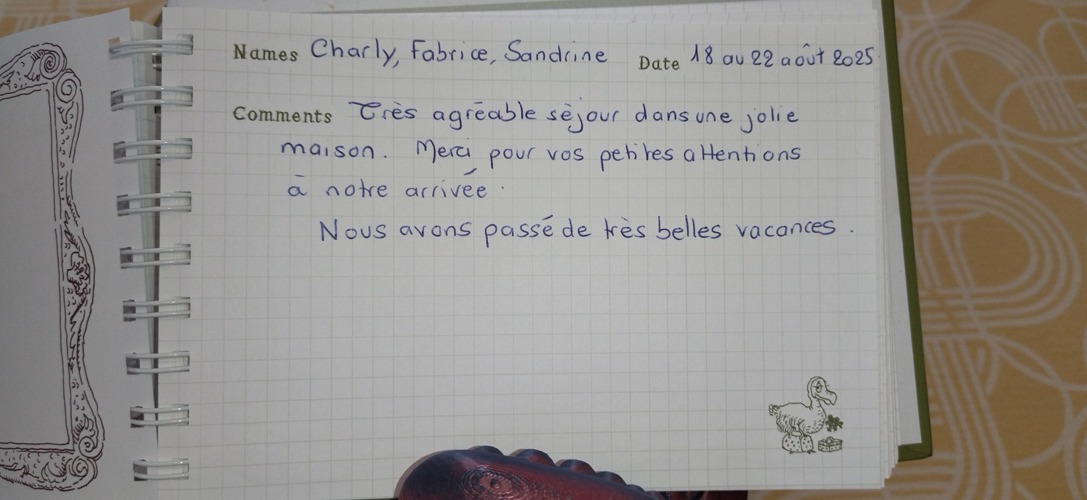 Names Charly, Fabrice, Sandrine Date 18 au 22 août 2025
Comments Très agréable séjour dans une jolie
maison. Merci pour vos petites attentions
à notre arrivée.
Nous avons passé de très belles vacances.